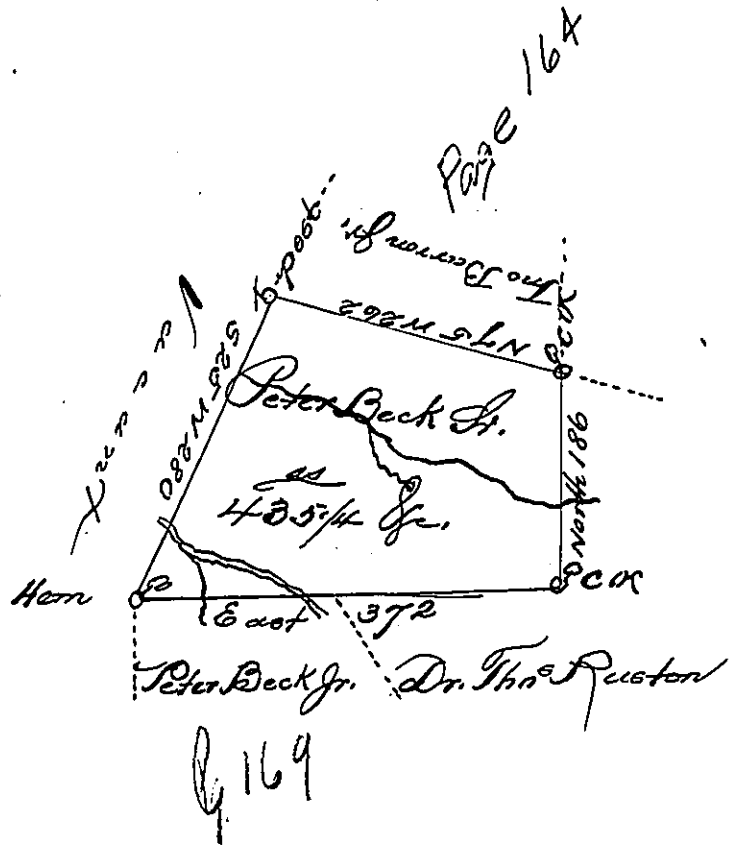 Page 164
Post
Jno Barron Jr.
N 75 W 262
S 25 W 280
Peter Beck Sr.
as
435 1/4 &c.
North 186
C.O.
C.O.
Hem
East 372
Peter Beck Jr. Dr. Thos Ruston
Pg 169